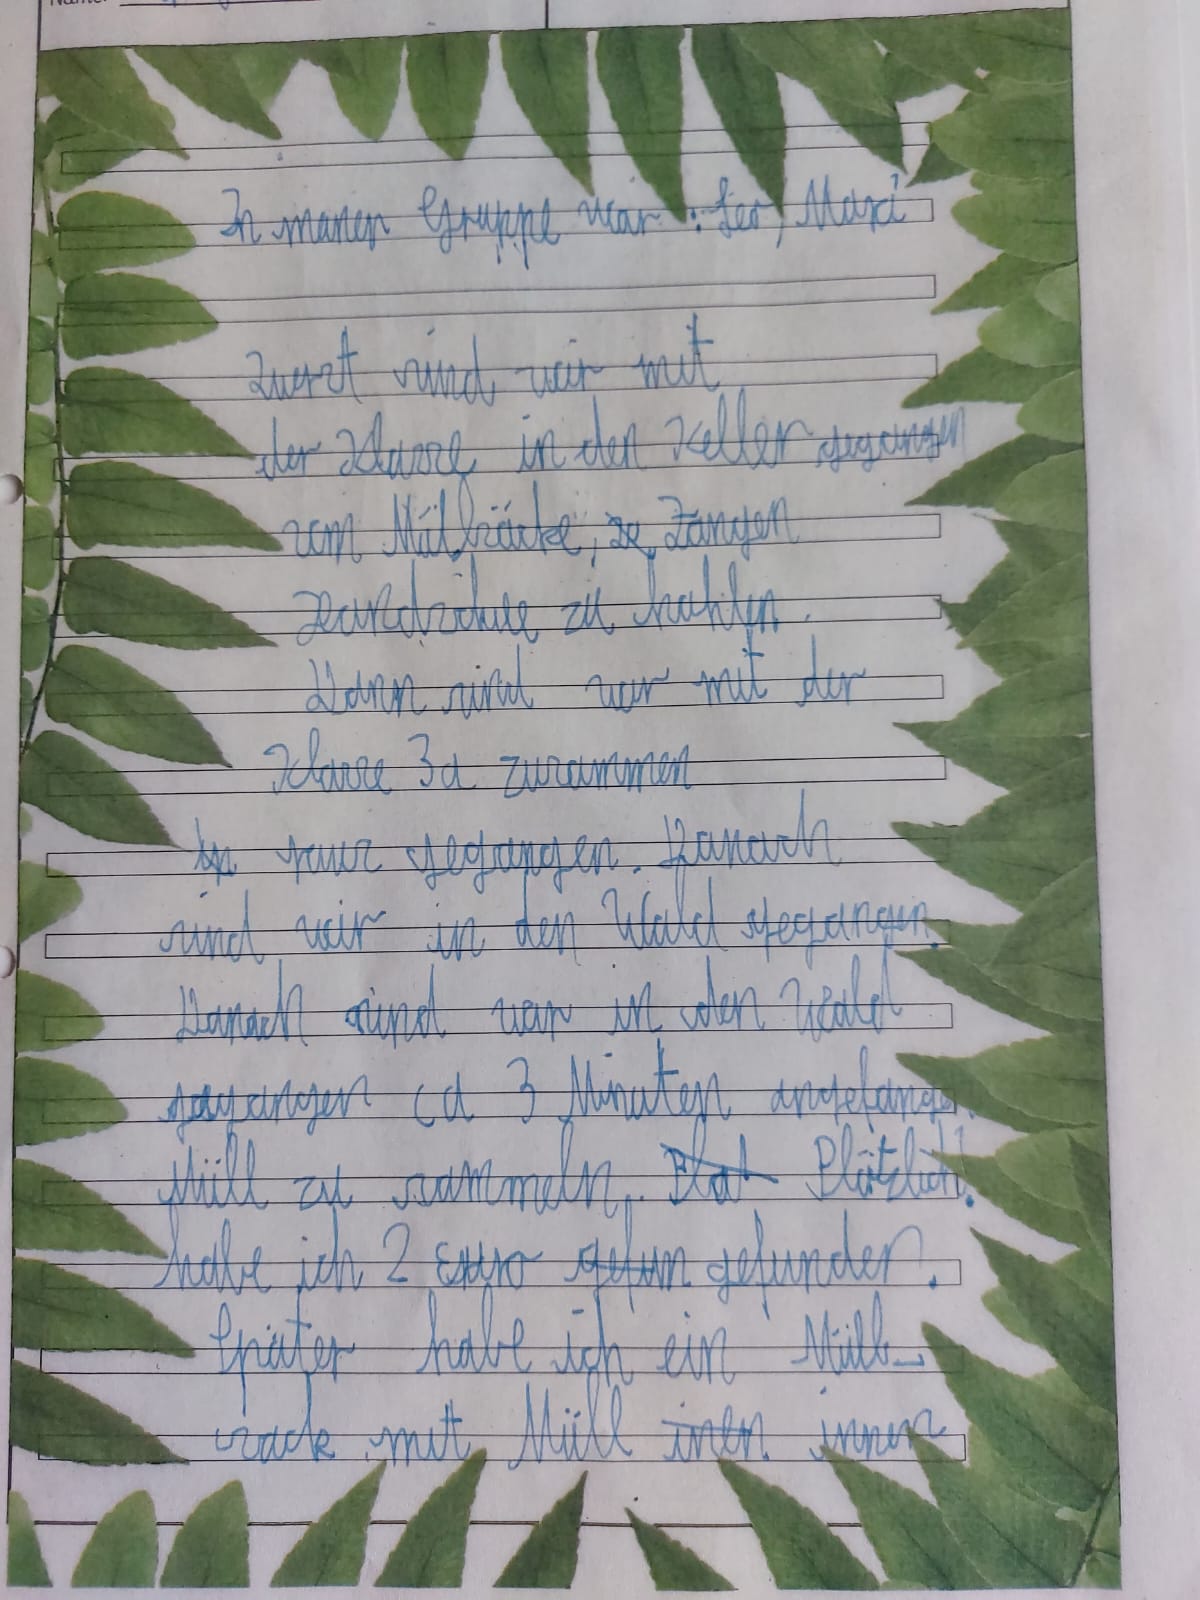 Name:
In meiner Gruppe war: Leo, Maxi
Zuerst sind wir mit
der Klasse in den Keller gegangen
um Mülsäcke, Zangen
Handschue zu hohlen.
Dann sind wir mit der
Klasse 3a zusammen
gegangen. Danach
sind wir in den Wald gegangen.
Danach sind wir in den Wald
gegangen ca 3 Minuten angefangen
Müll zu sammeln. Plötzlich!
habe ich 2 Euro gefunden.
Später habe ich ein Müll-
sack mit Müll innen